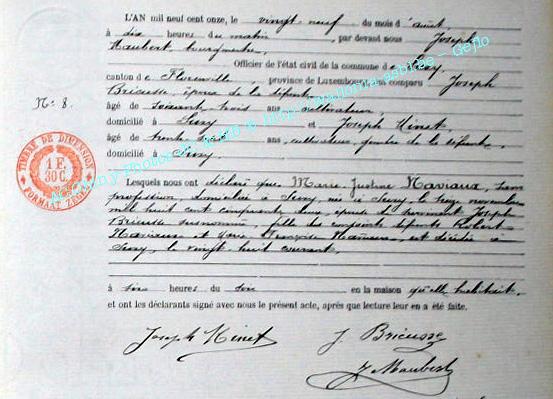 L'AN mil neuf cent onze, le vingt neuf du mois d'août,
à dix heures du matin, par devant nous Joseph
Maubert bourgmestre
Officier de l'état civil de la commune de Suxy,
canton de Florenville, province de Luxembourg ont comparu Joseph
Bricusse, époux de la défunte
âgé de soixante trois ans cultivateur
domicilié à Suxy et Joseph Hinet,
âgé de trente ans, cultivateur, gendre de la défunte,
domicilié à Suxy.
N° 8.
TIMBRE DE DIMENSION
1 F.
30 C.
FORMAAT ZEGEL
Lesquels nous ont déclaré que Marie Justine Maviaux, sans
profession, domiciliée à Suxy, née à Suxy le seize novembre
mil huit cent cinquante deux, épouse de Joseph
Bricusse, fille des conjoints défunts Robert
Maviaux et Françoise, est décédée à
Suxy, le vingt huit courant,
à six heures du soir en la maison qu'elle habitait.
et ont les déclarants signé avec nous le présent acte, après que lecture leur en a été faite.
Joseph Hinet J. Bricusse
J. Maubert